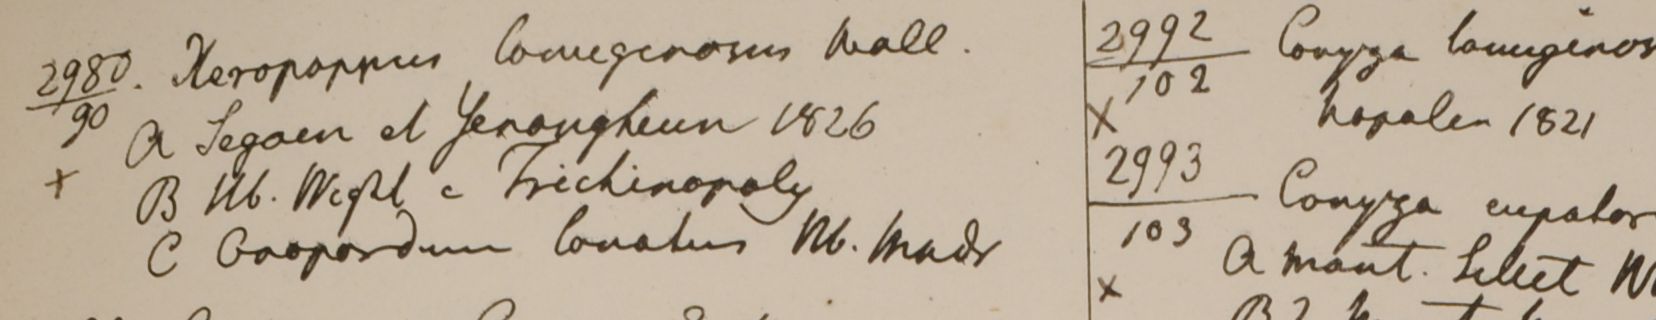 2980. Xeropappus lanuginosus Wall.
90
A Segaen et Yenangheun 1826
x
B Hb. Wight e Trichinopoly
C Onopordum lanatum Hb. Madr
2992 Conyza lanuginos
102
x Napalia 1821
2993 Conyza eupator
103
A Mont. Silhet
x